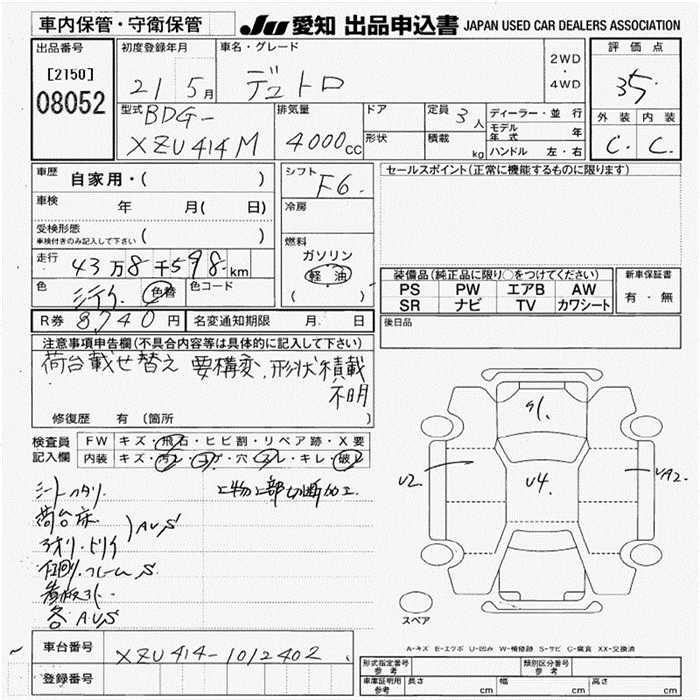 車内保管・守衛保管
JU 愛知 出品申込書 JAPAN USED CAR DEALERS ASSOCIATION
出品番号
[2150]
08052
初度登録年月
21 5月
車名・グレード
デュトロ
2WD
・
4WD
評価点
3.5
外装 内装
C. C.
型式 BDG-
XZU414M
排気量
4000cc
ドア
形状
定員 3人
積載 kg
ディーラー・並行
モデル年式 年
ハンドル 左・右
車歴
自家用・( )
車検
年 月( 日)
受検形態
車検付きのみ記入して下さい ( )
走行
43万8千598km
色
色替
色コード
シフト
F6.
冷房
燃料
ガソリン
軽油
( )
セールスポイント(正常に機能するものに限ります)
装備品(純正品に限り○をつけてください)
PS PW エアB AW
SR ナビ TV カワシート
新車保証書
有・無
後日品
R券 8740円
名変通知期限 月. 日
注意事項申告欄(不具合内容等は具体的に記入して下さい)
荷台載せ替え 要構変.形状積載
不明
修復歴 有(箇所 )
検査員
記入欄
FW キズ・飛石・ヒビ割・リペア跡・X要
内装 キズ・汚レ・コゲ・穴・スレ・キレ・破レ
上物上部切断加工.
荷台床
アオリ・トリイ
AUS
左側.フレームS
看板スレ
各AUS
S1.
U2
U4.
UA2.
スペア
A-キズ E-エクボ U-凹み W-補修跡 S-サビ C-腐食 XX-交換済
車台番号
XZU414-1012402
登録番号
形式指定番号
参考
類別区分番号
参考
車庫証明用
参考
長さ cm
幅 cm
高さ cm